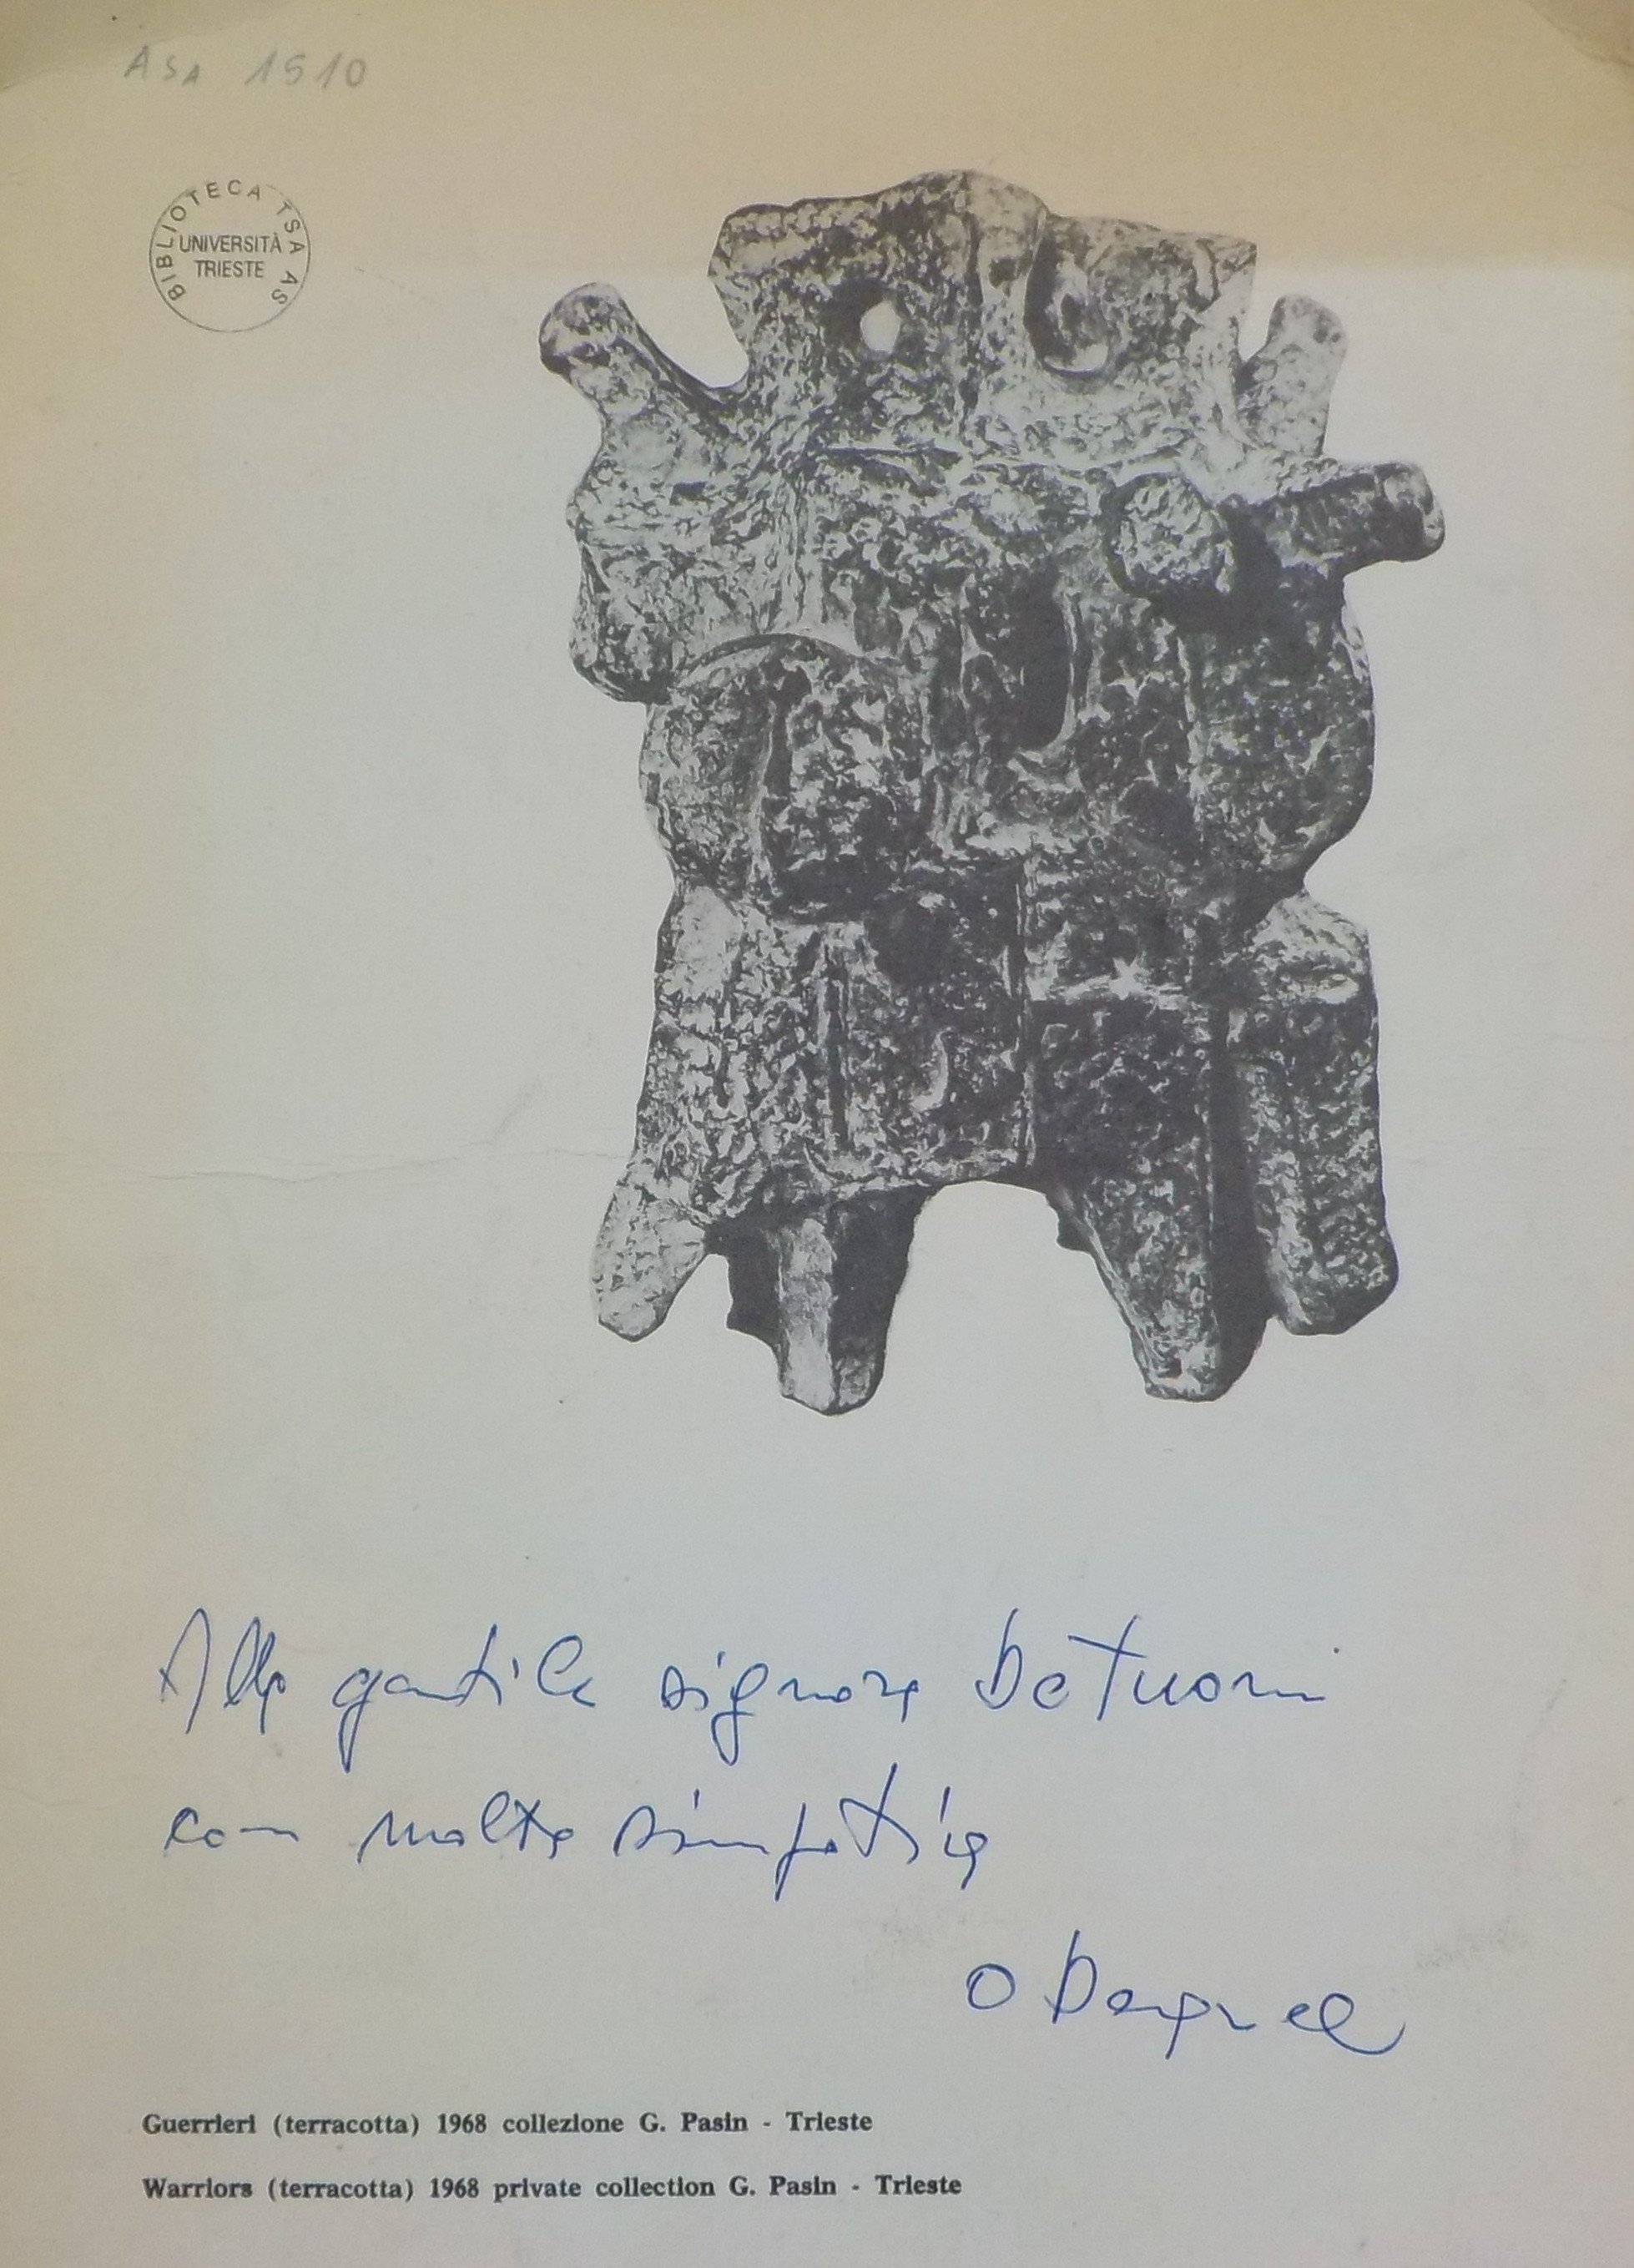 ASA 1510
BIBLIOTECA TSA AS
UNIVERSITÀ
TRIESTE
Alla gentile signora
con molta simpatia
O
Guerrieri (terracotta) 1968 collezione G. Pasin - Trieste
Warriors (terracotta) 1968 private collection G. Pasin - Trieste